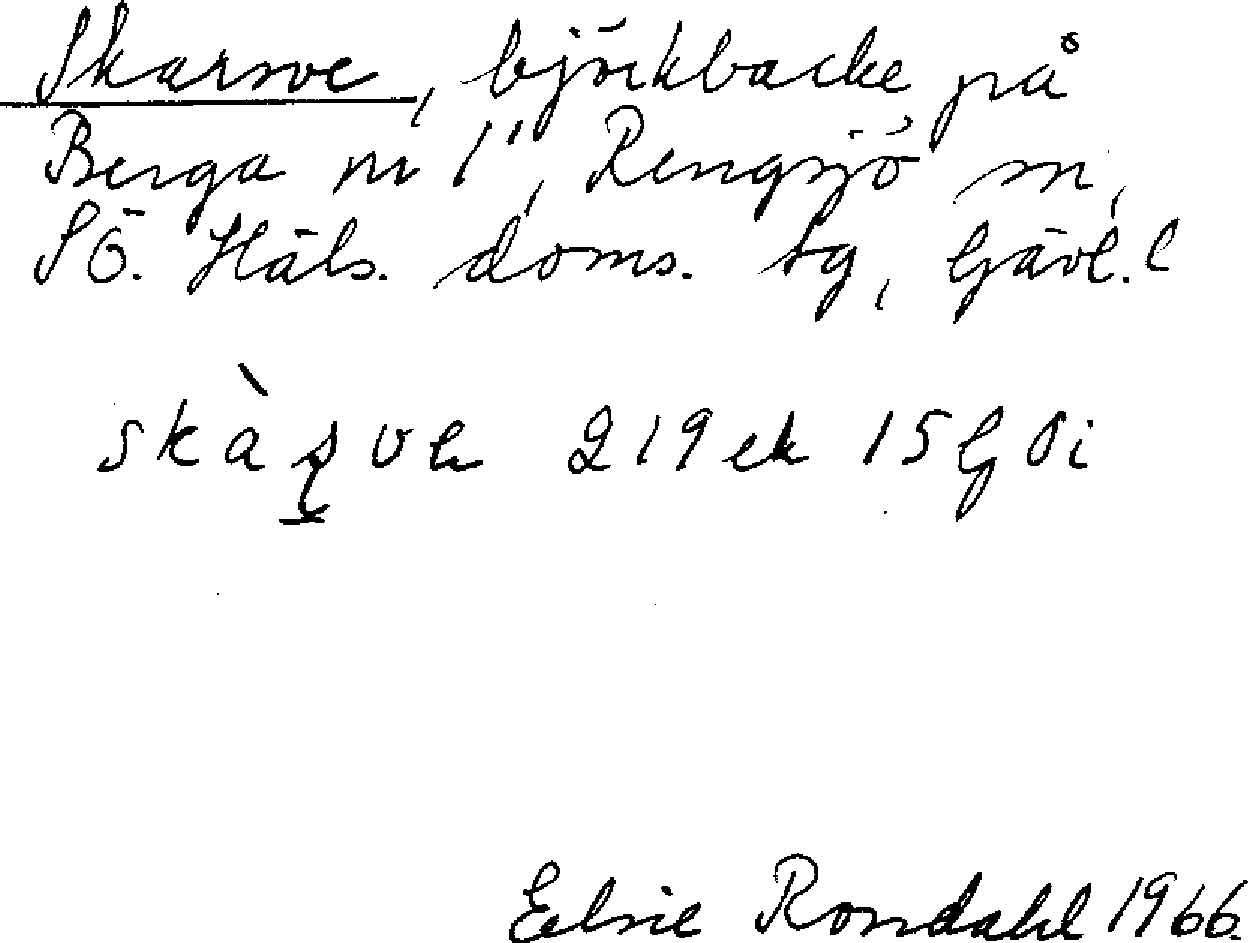 Skarsve, björkbacke på
Berga nr 1", Rengsjö sn,
SÖ. Häls. doms. tg, Gävl. l
219 ek 15 G Ö i
Elsie Rondahl 1966.